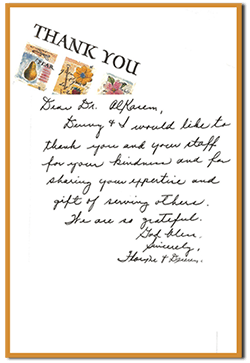 THANK YOU
Dear Dr. AlKasem,
Denny & I would like to
thank you and your staff
for your kindness and for
sharing your expertise and
gift of serving others.
We are so grateful.
God bless.
Sincerely,
& Denny